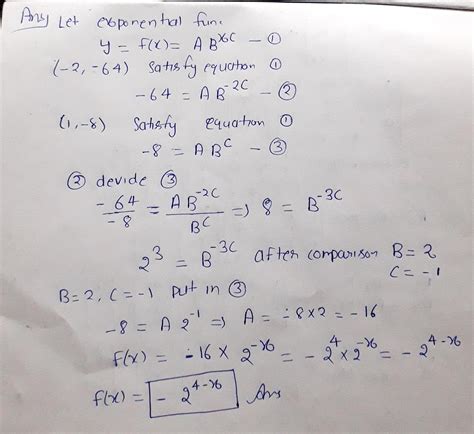 Ans Let exponential fun.
y = f(x) = A B^xC — ①
(-2, -64) Satisfy equation ①
-64 = A B^-2C — ②
(1, -8) Satisfy equation ①
-8 = A B^C — ③
② devide ③
-64/-8 = AB^-2C/B^C => 8 = B^-3C
2^3 = B^-3C after comparison B = 2
C = -1
B = 2, C = -1 put in ③
-8 = A 2^-1 => A = -8×2 = -16
f(x) = -16 × 2^-x = -2^4 × 2^-x = -2^4-x
f(x) = -2^4-x Ans